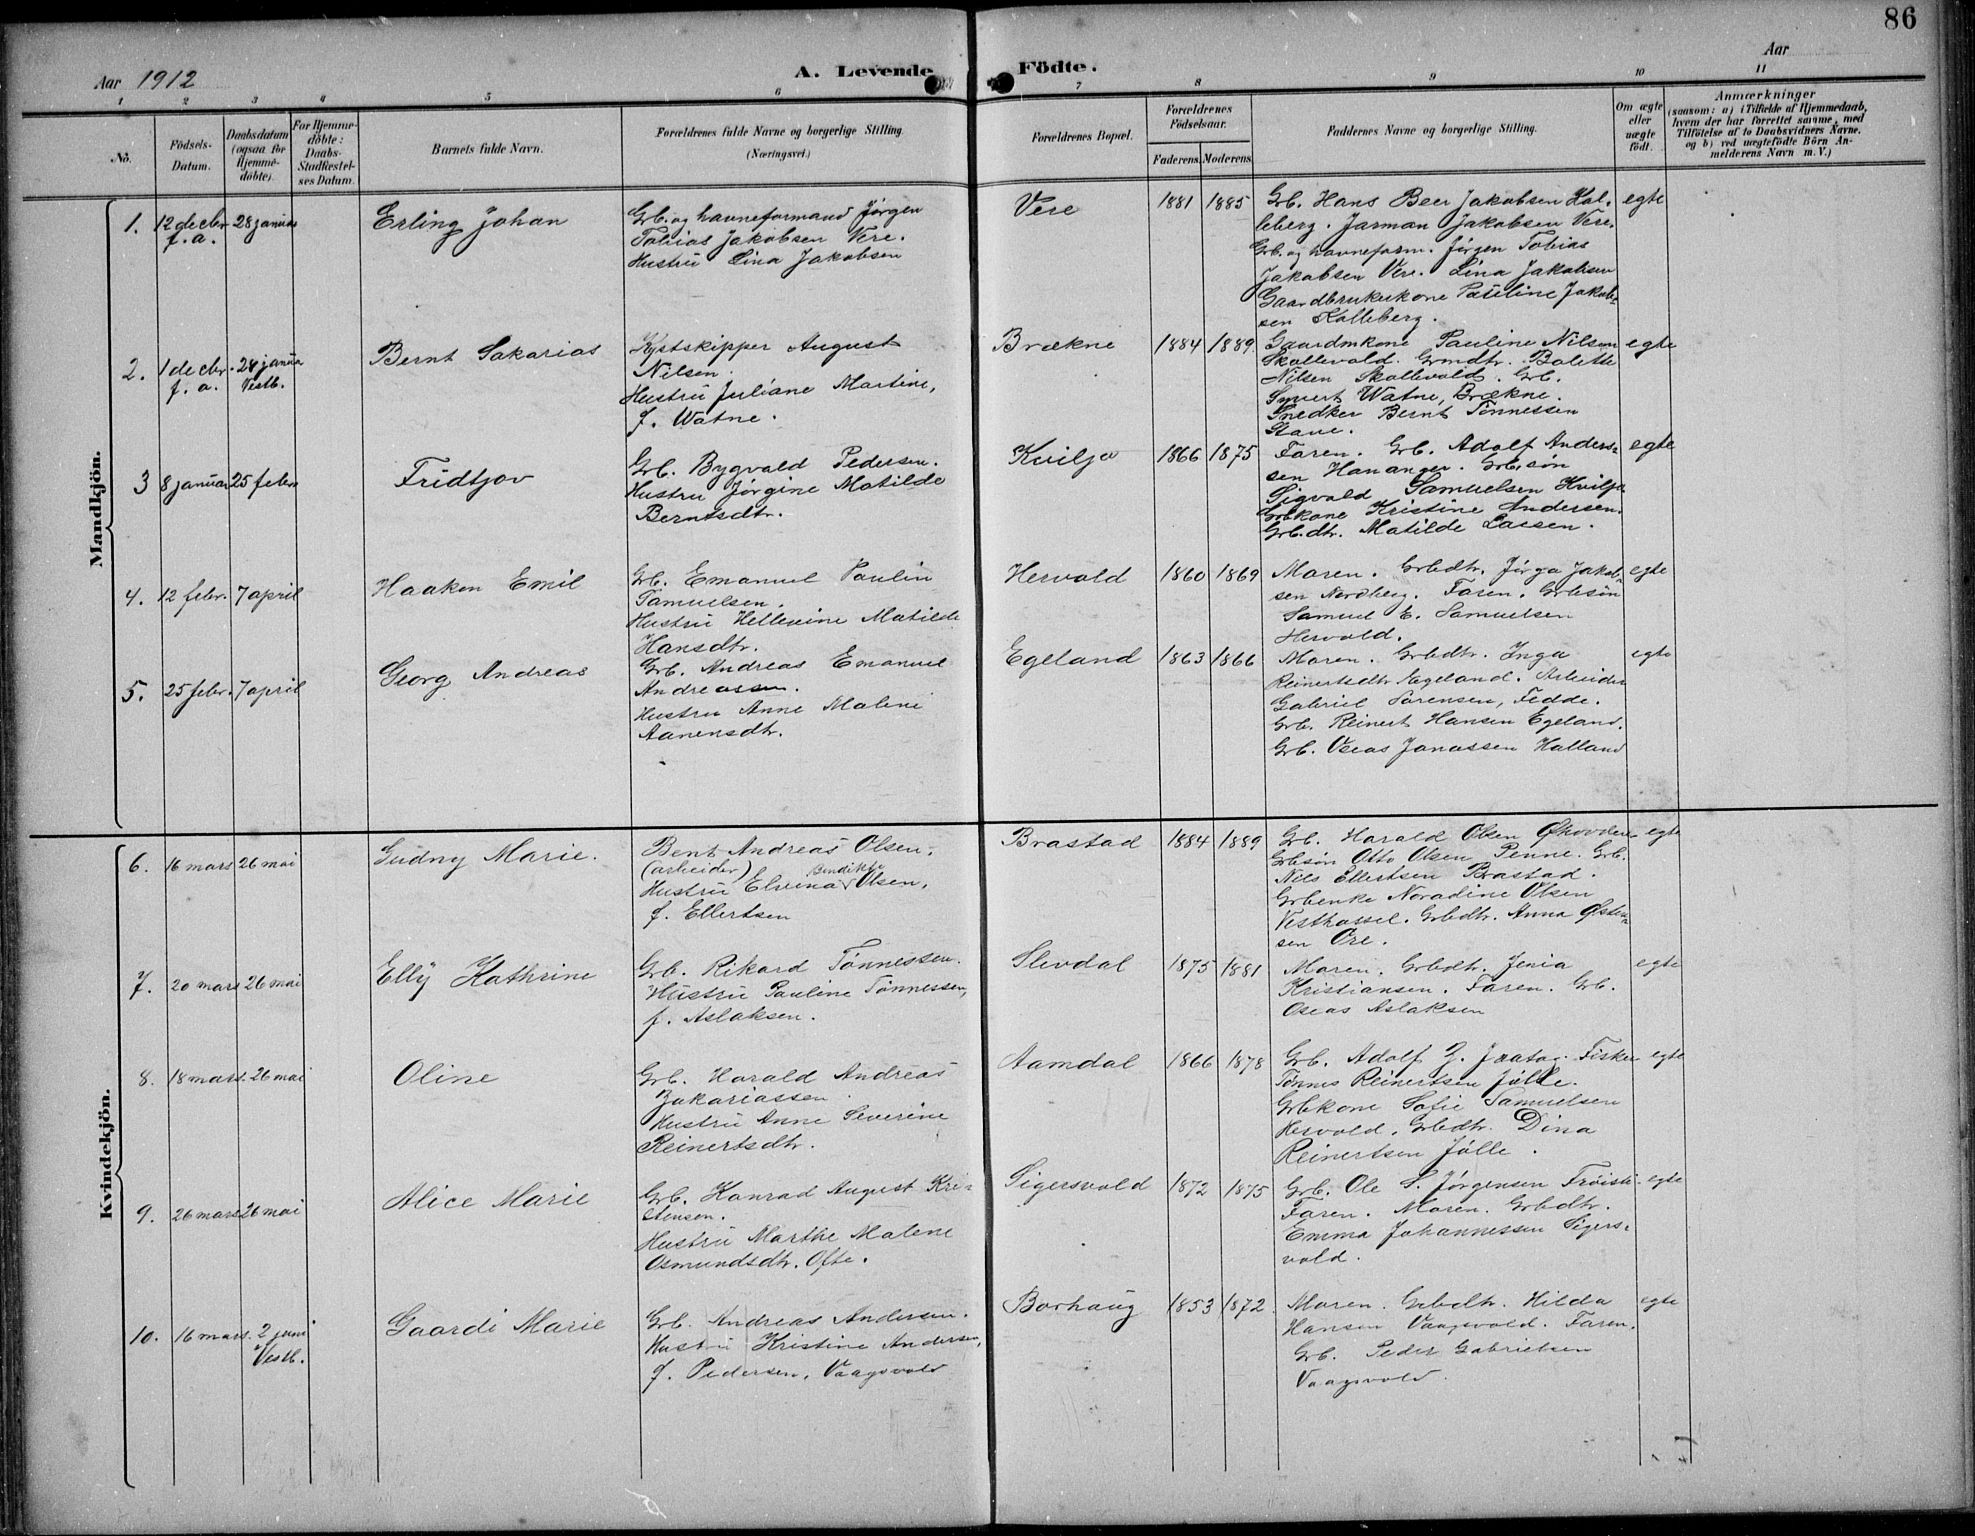 86
Aar 1912
A. Levende Födte.
Aar
1 2 3 4 5 6 7 8 9 10 11
No.
Födsels-
Datum.
Daabsdatum
(ogsaa for
Hjemme-
döbte).
For Hjemme-
döbte:
Daabs-
Stadfestel-
ses Datum.
Barnets fulde Navn.
Forældrenes fulde Navne og borgerlige Stilling.
(Næringsvei.)
Forældrenes Bopæl.
Forældrenes
Födselsaar.
Faderens. Moderens.
Faddernes Navne og borgerlige Stilling.
Om ægte
eller
uægte
födt.
Anmærkninger
(saasom: a) i Tilfælde af Hjemmedaab,
hvem der har forrettet samme, med
Tilföielse af to Daabsvidners Navne,
og b) ved uægtefödte Börn An-
melderens Navn m. V.)
Mandkjön.
1.
12 decbr.
f. a.
28 januar
Erling Johan
Grb. og havneformand Jørgen
Tobias Jakobsen Vere.
Hustru Lina Jakobsen
Vere
1881
1885
Grb. Hans Beer Jakobsen Kal-
leberg. Jarman Jakobsen Vere.
Grb. og havneform. Jørgen Tobias
Jakobsen Vere. Lina Jakobsen
Gaardbrukerkone Pauline Jakob-
sen Kalleberg.
egte
2.
1 decbr.
f. a.
28 janua
Vestb.
Bernt Sakarias
Kystskipper August
Nilsen.
Hustru Juliane Martine,
f. Watne.
Brækne
1884
1889
Gaardmkone Pauline Nilsen
Skollevold. Grmdtr. Bolette
Nilsen Skollevold. Grb.
Syvert Watne, Brækne.
Snedker Bernt Tønnessen
Stave.
egte
3
8 januar
25 febr.
Fridtjov
Grb. Bygvald Pedersen.
Hustru Jørgine Matilde
Berntsdtr.
Kviljo
1866
1875
Faren. Grb. Adolf Anders-
sen Hananger. Grb.søn
Sigvald Samuelsen Kvilje
Grbkone Kristine Andersen.
Grb.dtr. Matilde Lassen.
egte
4.
12 febr.
7 april
Haakon Emil
Grb. Emanuel Paulin
Samuelsen.
Hustru Hellevine Matilde
Hansdtr.
Hervold
1860
1869
Moren. Grbdtr. Jørga Jakob-
sen Nordberg. Faren. Grbsøn
Samuel E. Samuelsen
Hervold.
egte
5.
25 febr.
7 april
Georg Andreas
Grb. Andreas Emanuel
Andreassen.
Hustru Anne Malene
Aanensdtr.
Egeland
1863
1866
Moren. Grbdtr. Inga
Reinertsdtr Egeland. Arbeider
Gabriel Sørensen, Fedde.
Grb. Reinert Hansen Egeland.
Grb. Oseas Janassen Halland
egte
Kvindekjön.
6.
16 mars
26 mai
Gudny Marie.
Bent Andreas Olsen,
(arbeider)
Bendikte
Hustru Elvina Olsen,
f. Ellertsen
Brastad
1884
1889
Grb. Harald Olsen
Grbsøn Otto Olsen Penne. Grb.
Nils Ellertsen Brastad.
Grbenke Noradine Olsen
Vesthassel. Grbdtr. Anna Østen-
sen Øre.
egte
7.
20 mars
26 mai
Elly Kathrine
Grb. Rikard Tønnessen.
Hustru Pauline Tønnessen,
f. Aslaksen.
Slevdal
1875
1881
Moren. Grbdtr. Jenia
Kristiansen. Faren. Grb.
Oseas Aslaksen
egte
8.
18 mars.
26 mai
Oline
Grb. Harald Andreas
Zakariassen
Hustru Anne Severine
Reinertsdtr.
Aamdal
1866
1878
Grb. Adolf Z. Jaatog. Fisker
Tønnes Reinertsen Jølle.
Grbkone Sofie Samuelsen
Hervold. Grbdtr. Dina
Reinertsen Jølle.
egte
9.
26 mars
26 mai
Alice Marie
Grb. Konrad August Kri-
stensen.
Hustru Marthe Malene
Osmundsdtr. Ofte.
Sigersvold
1872
1875
Grb. Ole S. Jørgensen Trøisti
Faren. Moren. Grbdtr.
Emma Johannessen Sigers-
vold.
egte
10.
16 mars.
2 juni
Vestb.
Gaardi Marie
Grb. Andreas Andersen.
Hustru Kristine Andersen,
f. Pedersen, Vaagsvold
Borhaug
1853
1872
Moren. Grbdtr. Hilda
Hansen Vaagsvold. Faren.
Grb. Peder Gabrielsen
Vaagsvold.
egte